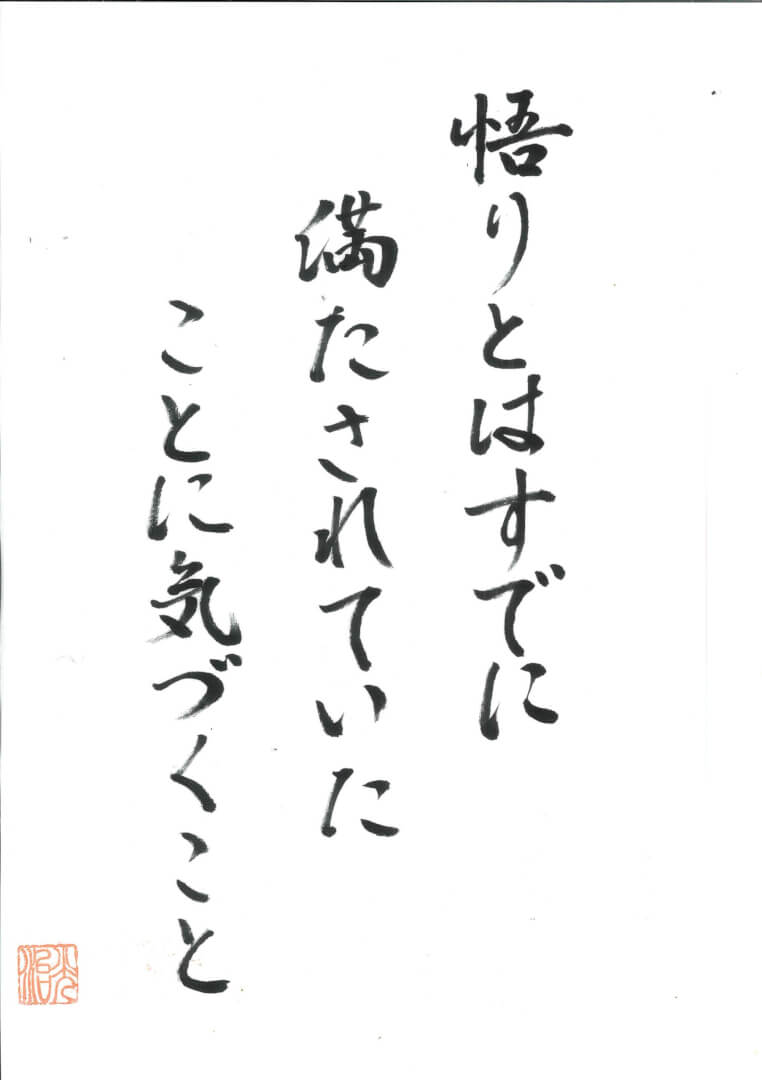 悟りとはすでに
満たされていた
ことに気づくこと